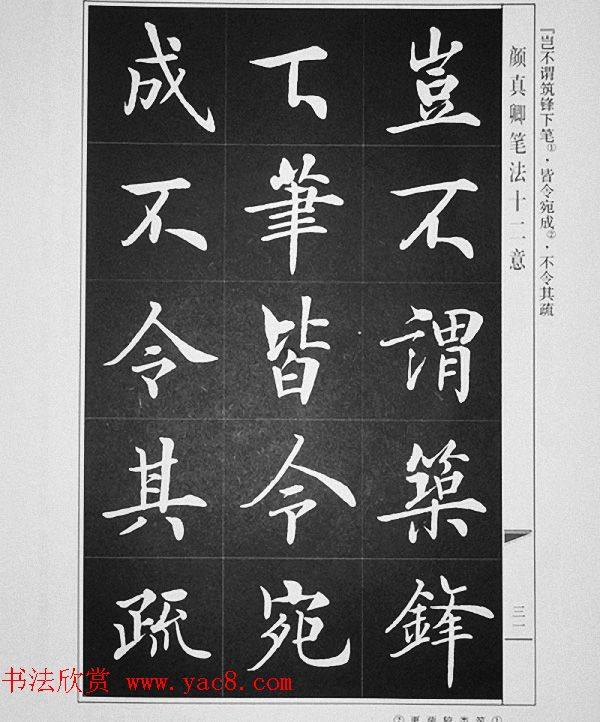 『岂不谓筑锋下笔①，皆令宛成②，不令其疏
颜真卿笔法十二意
三一
豈不謂築鋒
下筆皆令宛
成不令其疏
书法欣赏 www.yac8.com